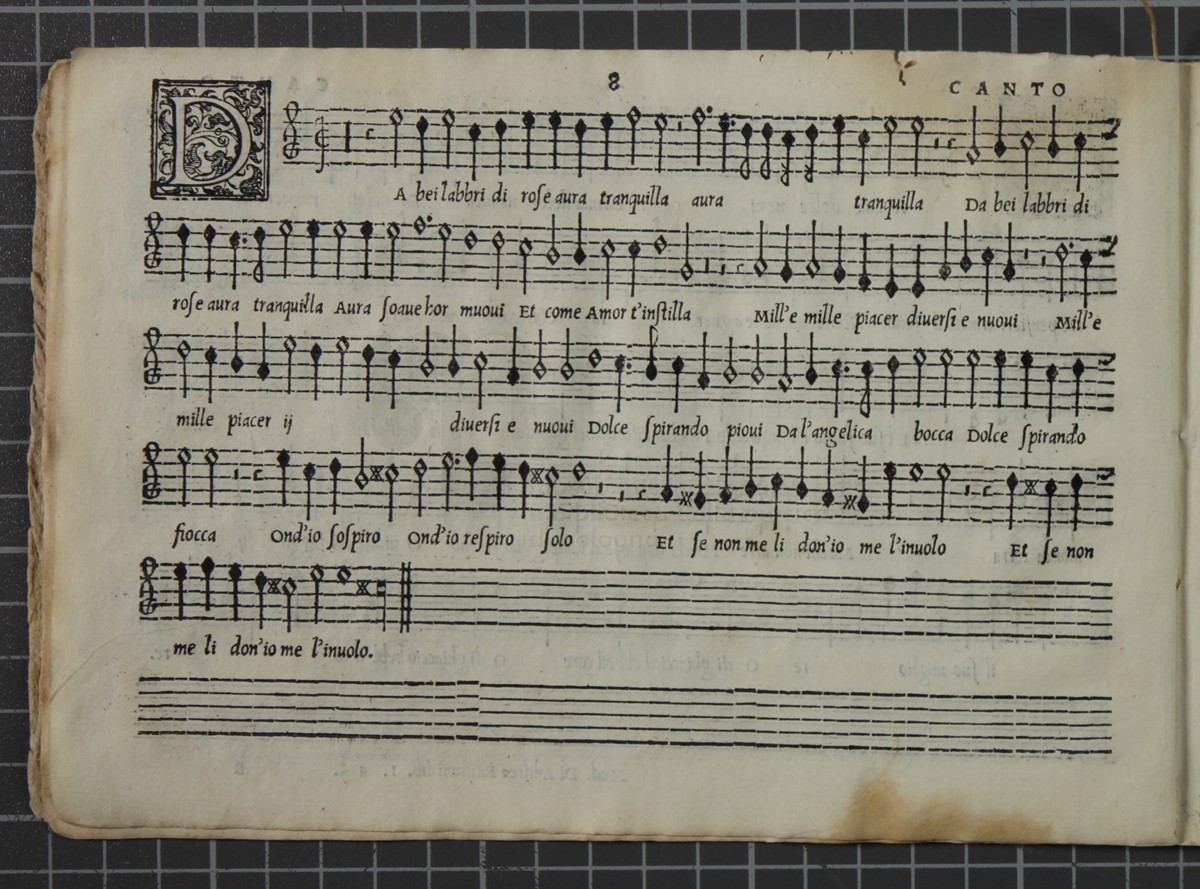 8
CANTO
DA bei labbri di rose aura tranquilla aura tranquilla Da bei labbri di
rose aura tranquilla Aura soaue hor muoui Et come Amor t'instilla Mill'e mille piacer diuersi e nuoui Mill'e
mille piacer ij diuersi e nuoui Dolce spirando pioui Da l'angelica bocca Dolce spirando
fiocca Ond'io sospiro Ond'io respiro solo Et se non me li don'io me l'inuolo Et se non
me li don'io me l'inuolo.